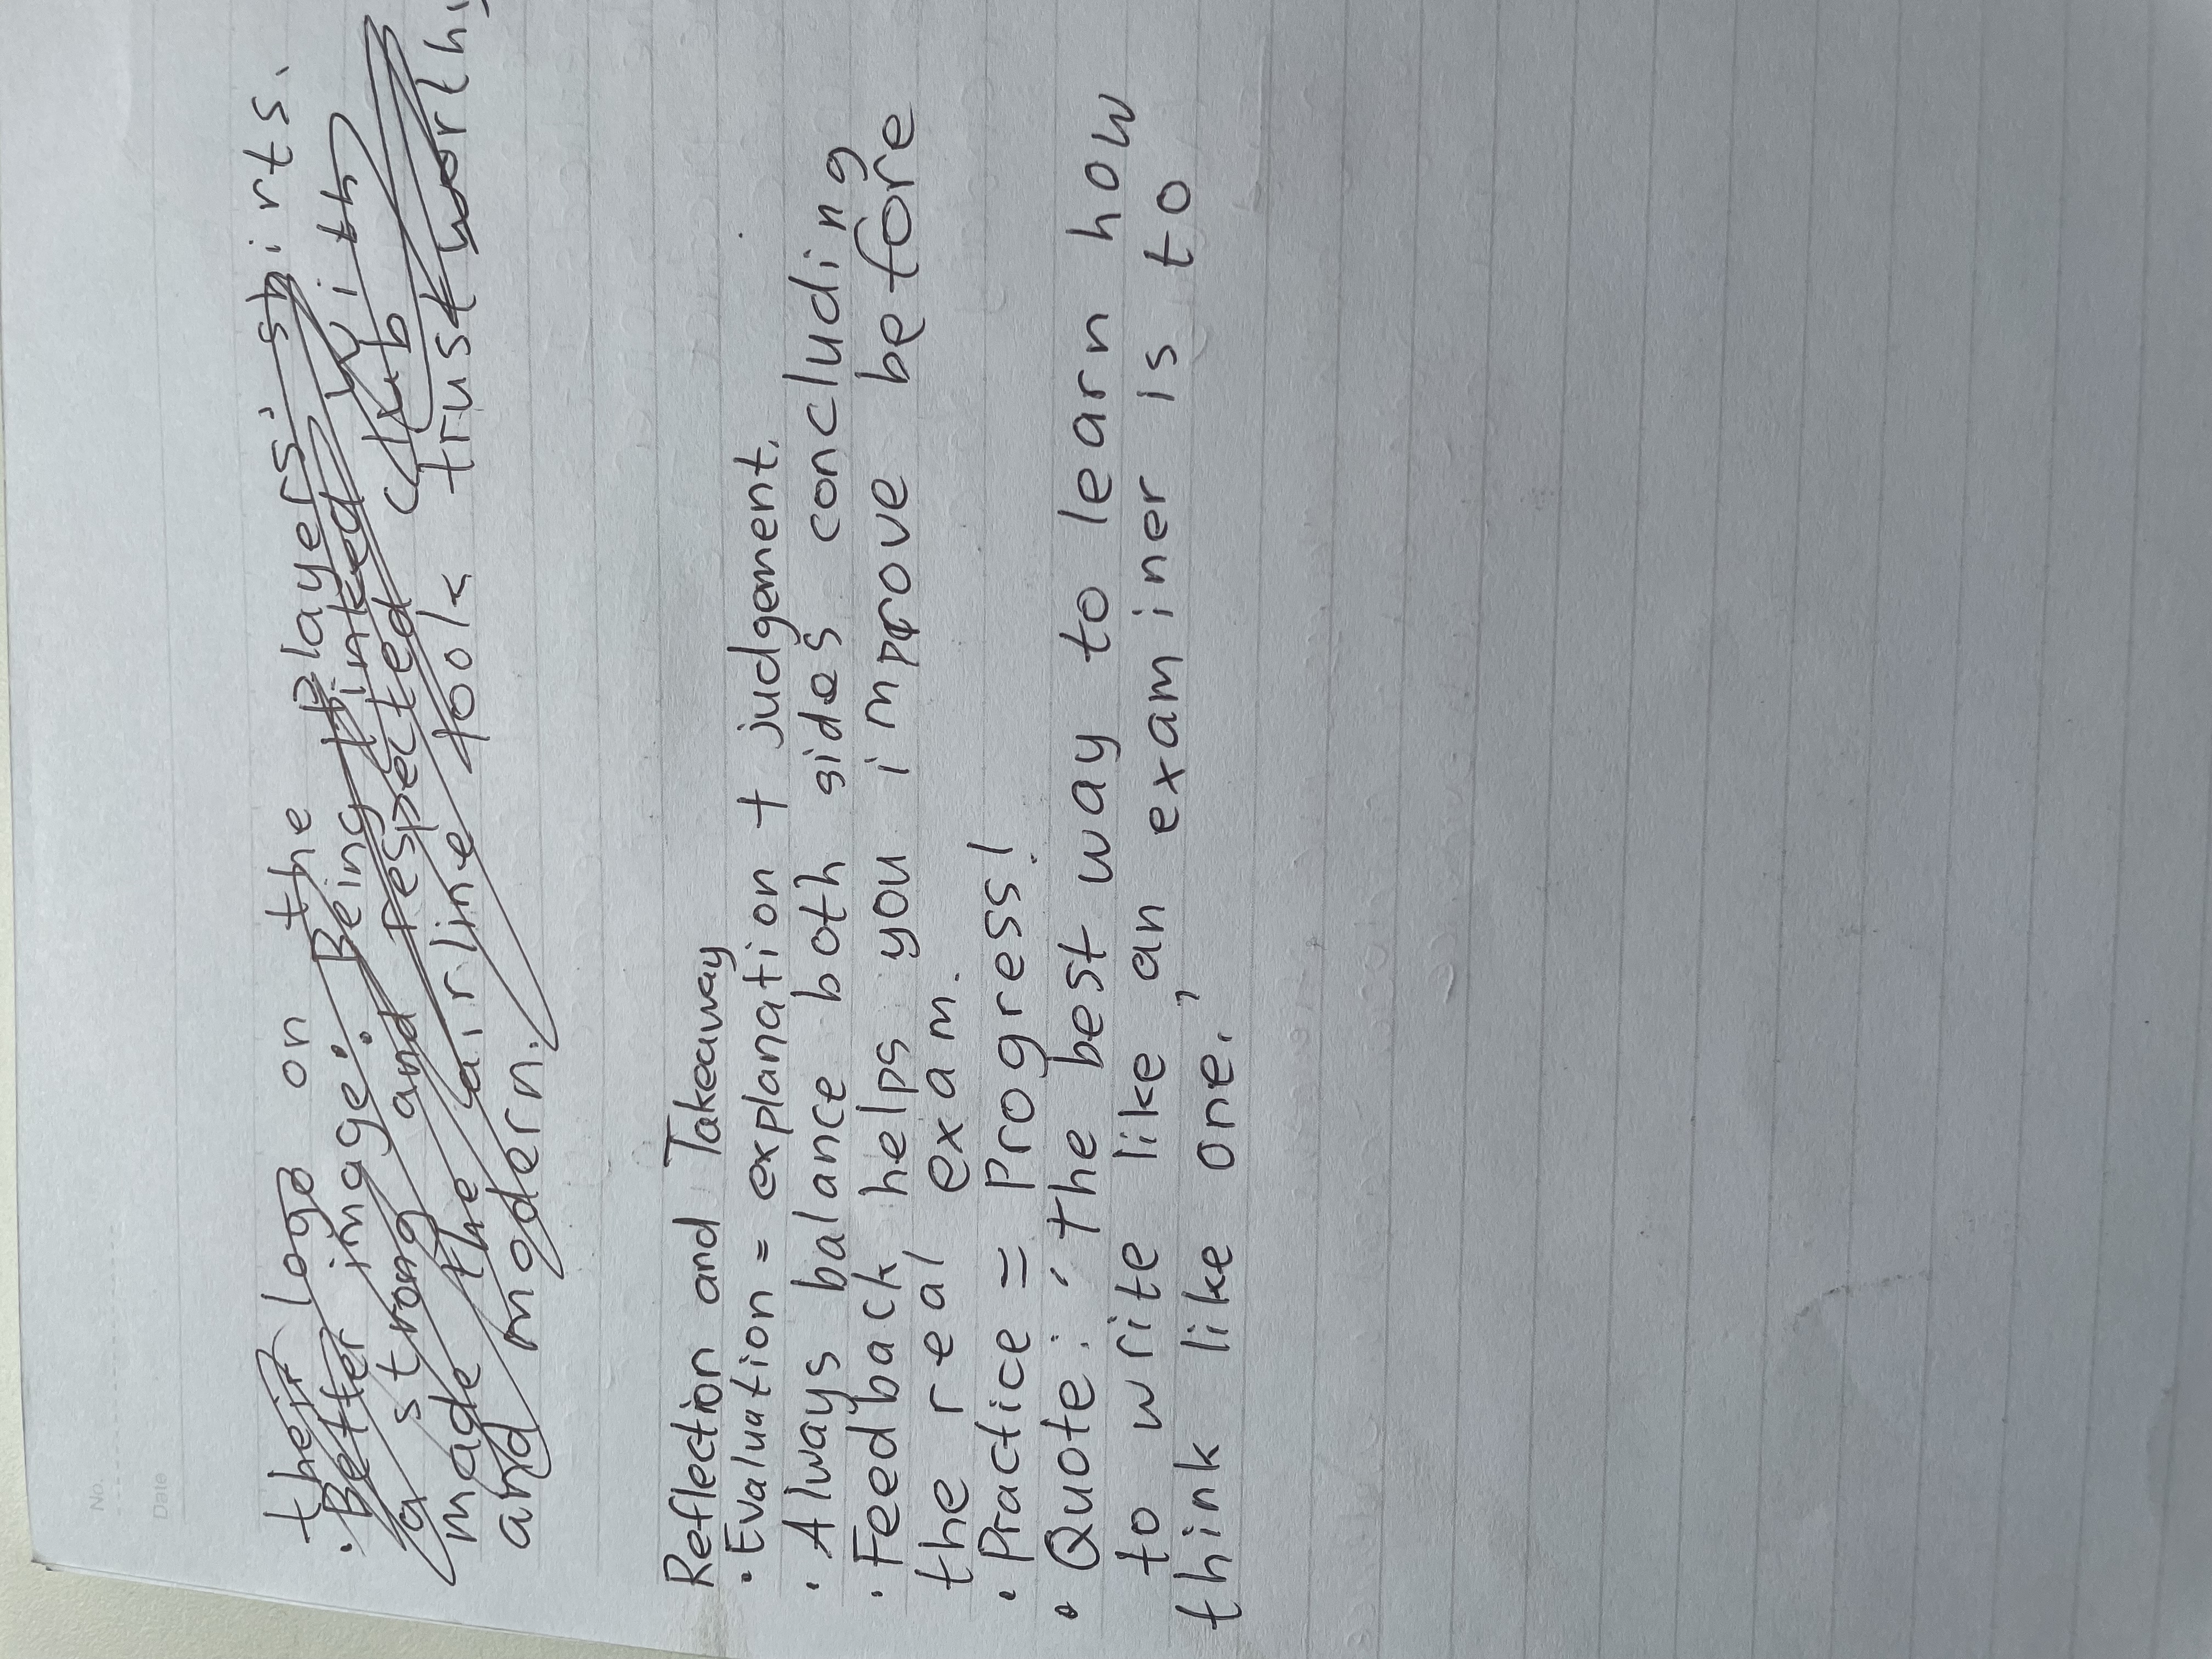 No.
Date
their logo on the players' shirts.
· Better image: Being linked with
a strong and respected club
made the airline look trustworthy
and modern.
Reflection and Takeaway
· Evaluation = explanation + judgement.
· Always balance both sides concluding
· Feedback helps you improve before
the real exam.
· Practice = Progress!
· Quote: 'the best way to learn how
to write like an examiner is to
think like one.'